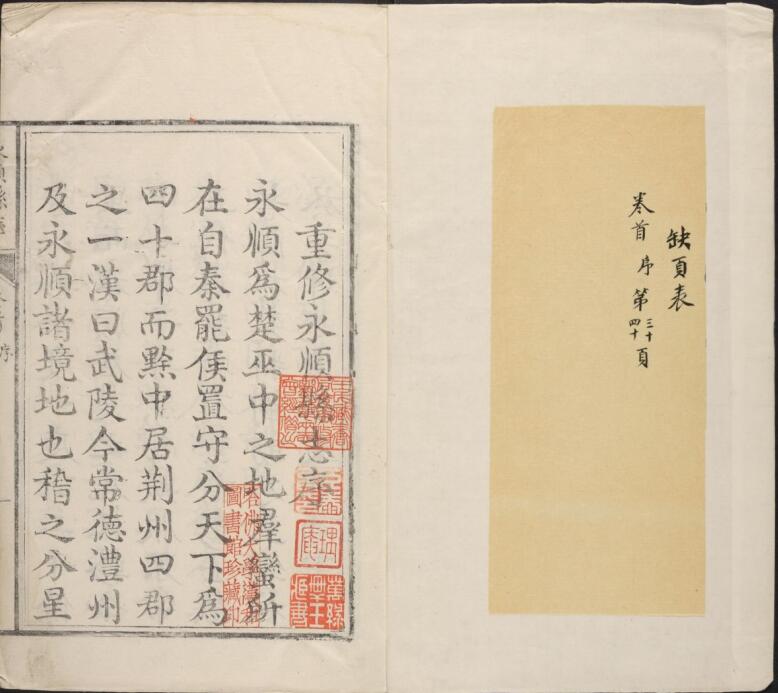 缺頁表
卷首 序 第三十四十頁
重修永順縣志序
永順爲楚巫中之地羣蠻所
在自秦罷侯置守分天下爲
四十郡而黔中居荆州四郡
之一漢曰武陵今常德澧州
及永順諸境地也稽之分星
順縣
序
哈佛大學漢和
圖書館珍藏印